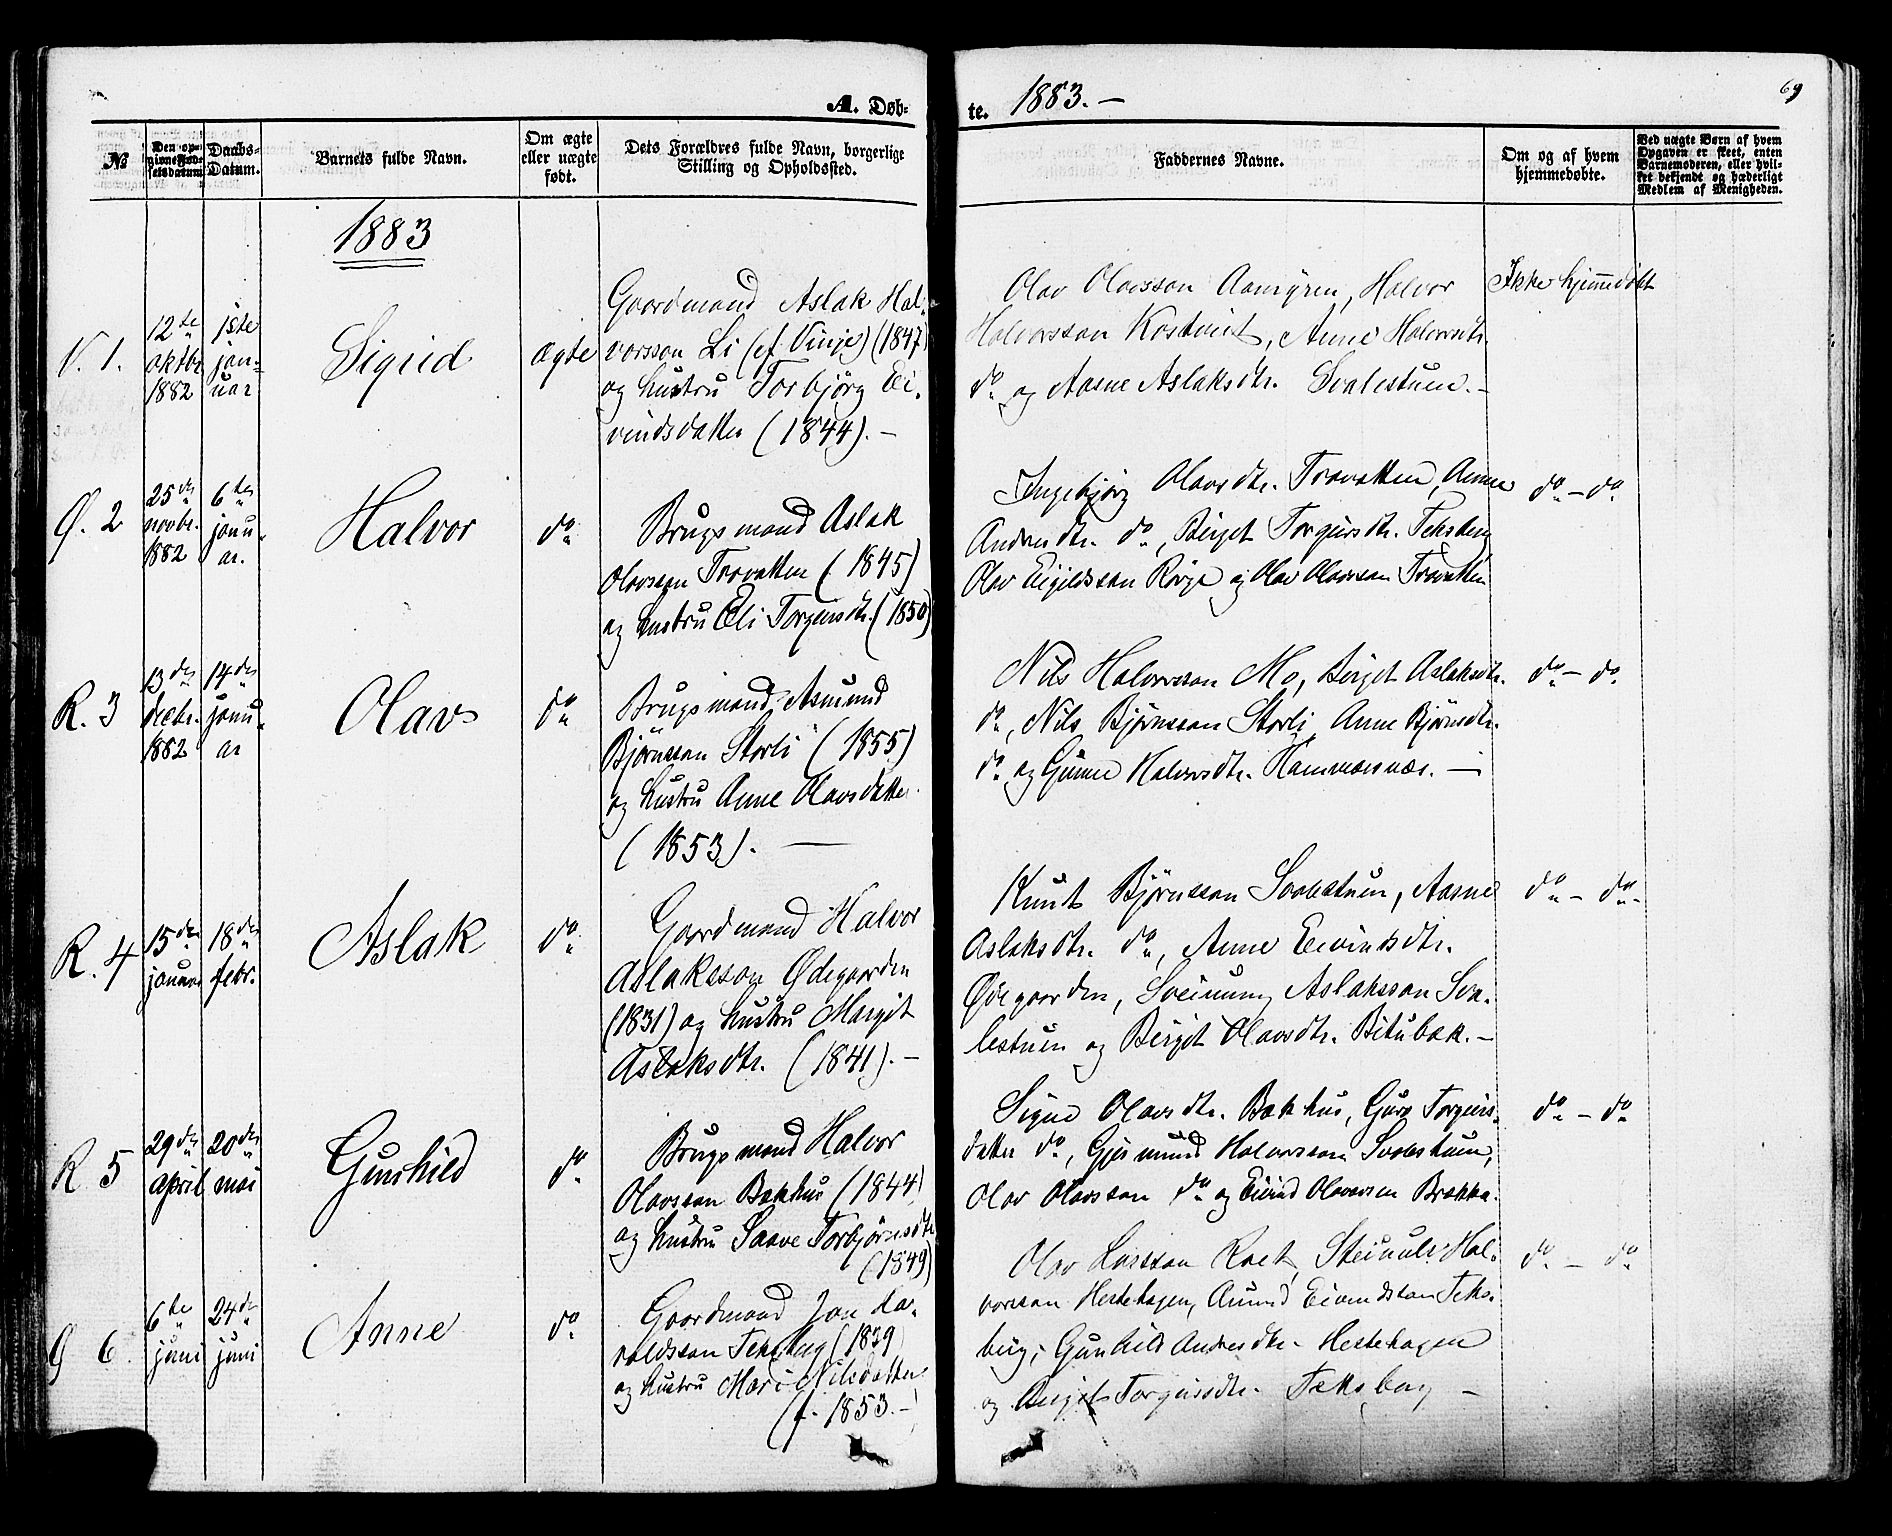 A. Døb-
te. 1883.–
69
№
Den op-
givne Fød-
selsdatum
Daabs-
Datum.
Barnets fulde Navn.
Om ægte
eller uægte
født.
Dets Forældres fulde Navn, borgerlige
Stilling og Opholdssted.
Faddernes Navne.
Om og af hvem
hjemmedøbte.
Ved uægte Børn af hvem
Opgaven er skeet, enten
Barnemoderen, eller hvil-
ket bekjendt og hæderligt
Medlem af Menigheden.
1883
V. 1.
12te
oktbr
1882
1ste
jan-
uar
Sigrid
ægte
Gaardmand Aslak Hal-
vorsson Li (af Vinje) (1847)
og hustru Torbjörg Ei-
vindsdatter (1844). –
Olav Olavsson Aamyren, Halvor
Halvorsson Kostveit, Anne Halvorsdtr.
do og Aasne Aslaksdtr. Svalestuen. –
Ikke hjemmedöbt
Ø. 2
25de
novbr.
1882
6te
janu-
ar.
Halvor
do
Brugsmand Aslak
Olavsson Trovatten (1845)
og hustru Eli Torgeirsdtr. (1850)
Ingebjörg Olavsdtr. Trovatten, Anne
Andresdtr. do, Birget Torgeirsdtr. Teksberg
Olav Eigildsson Röyse og Olav Olavsson Trovatten
do – do
R. 3
13de
decbr.
1882
14de
janu-
ar
Olav
do
Brugsmand Asmund
Bjørnsson Storli (1855)
og hustru Anne Olavsdatter
(1853). —
Nils Halvorsson Mo, Birget Aslaksdtr.
do, Nils Bjørnsson Storli, Anne Bjørnsdtr.
do og Gunne Halvorsdtr. Hammarsnæs. —
do – do
R. 4
15de
januar
18de
febr.
Aslak
do
Gaardmand Halvor
Aslaksson Ødegaarden
(1831) og hustru Margit
Aslaksdtr. (1841). –
Knut Bjørnsson Svalestuen, Aasne
Aslaksdtr. do, Anne Eivindsdtr.
Ødegaarden, Sveinung Aslaksson Sva-
lestuen og Birget Olavsdtr. Bitubæk. –
do – do –
R 5
29de
april
20de
mai
Gunhild
do
Brugsmand Halvor
Olavsson Bakhus (1844)
og hustru Saave Torbjørnsdtr
(1849)
Signe Olavsdtr. Bakhus, Guro Torgeirs-
datter do, Gjermund Halvorsson Svalestuen,
Olav Olavsson do og Eivind Olavssen Brække.
do – do
G 6.
6te
juni
24de
juni
Anne
do
Gaardmand Jon Ha-
raldsson Teksberg (1839)
og hustru Mari Nilsdatter
(f. 1853. –)
Olav Larsson Roet, Steinulv Hal-
vorsson Hestehagen, Amund Eivindsson Teks-
berg, Gunhild Andresdtr. Hestehagen
og Birget Torgeirsdtr. Teksberg –
do – do